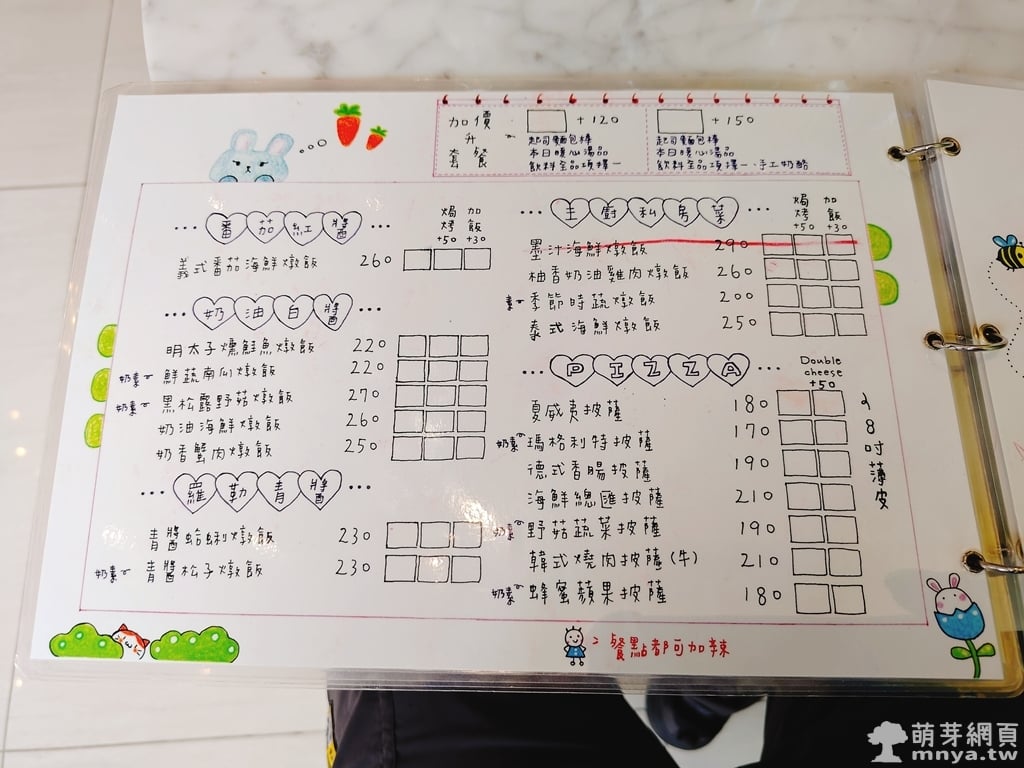 加價升套餐
+120
起司麵包棒
本日暖心湯品
飲料全品項擇一
+150
起司麵包棒
本日暖心湯品
飲料全品項擇一、手工奶酪
番茄紅醬
焗烤+50
加飯+30
義式番茄海鮮燉飯 260
奶油白醬
明太子燻鮭魚燉飯 220
奶素 鮮蔬南瓜燉飯 220
奶素 黑松露野菇燉飯 270
奶油海鮮燉飯 260
奶香蟹肉燉飯 250
羅勒青醬
青醬蛤蜊燉飯 230
奶素 青醬松子燉飯 230
主廚私房菜
焗烤+50
加飯+30
墨汁海鮮燉飯 290
柚香奶油雞肉燉飯 260
素 季節時蔬燉飯 200
泰式海鮮燉飯 250
PIZZA
Double cheese +50
夏威夷披薩 180
奶素 瑪格利特披薩 170
德式香腸披薩 190
海鮮總匯披薩 210
奶素 野菇蔬菜披薩 190
韓式燒肉披薩(牛) 210
奶素 蜂蜜蘋果披薩 180
8吋薄皮
餐點都可加辣
萌芽網頁
mnya.tw